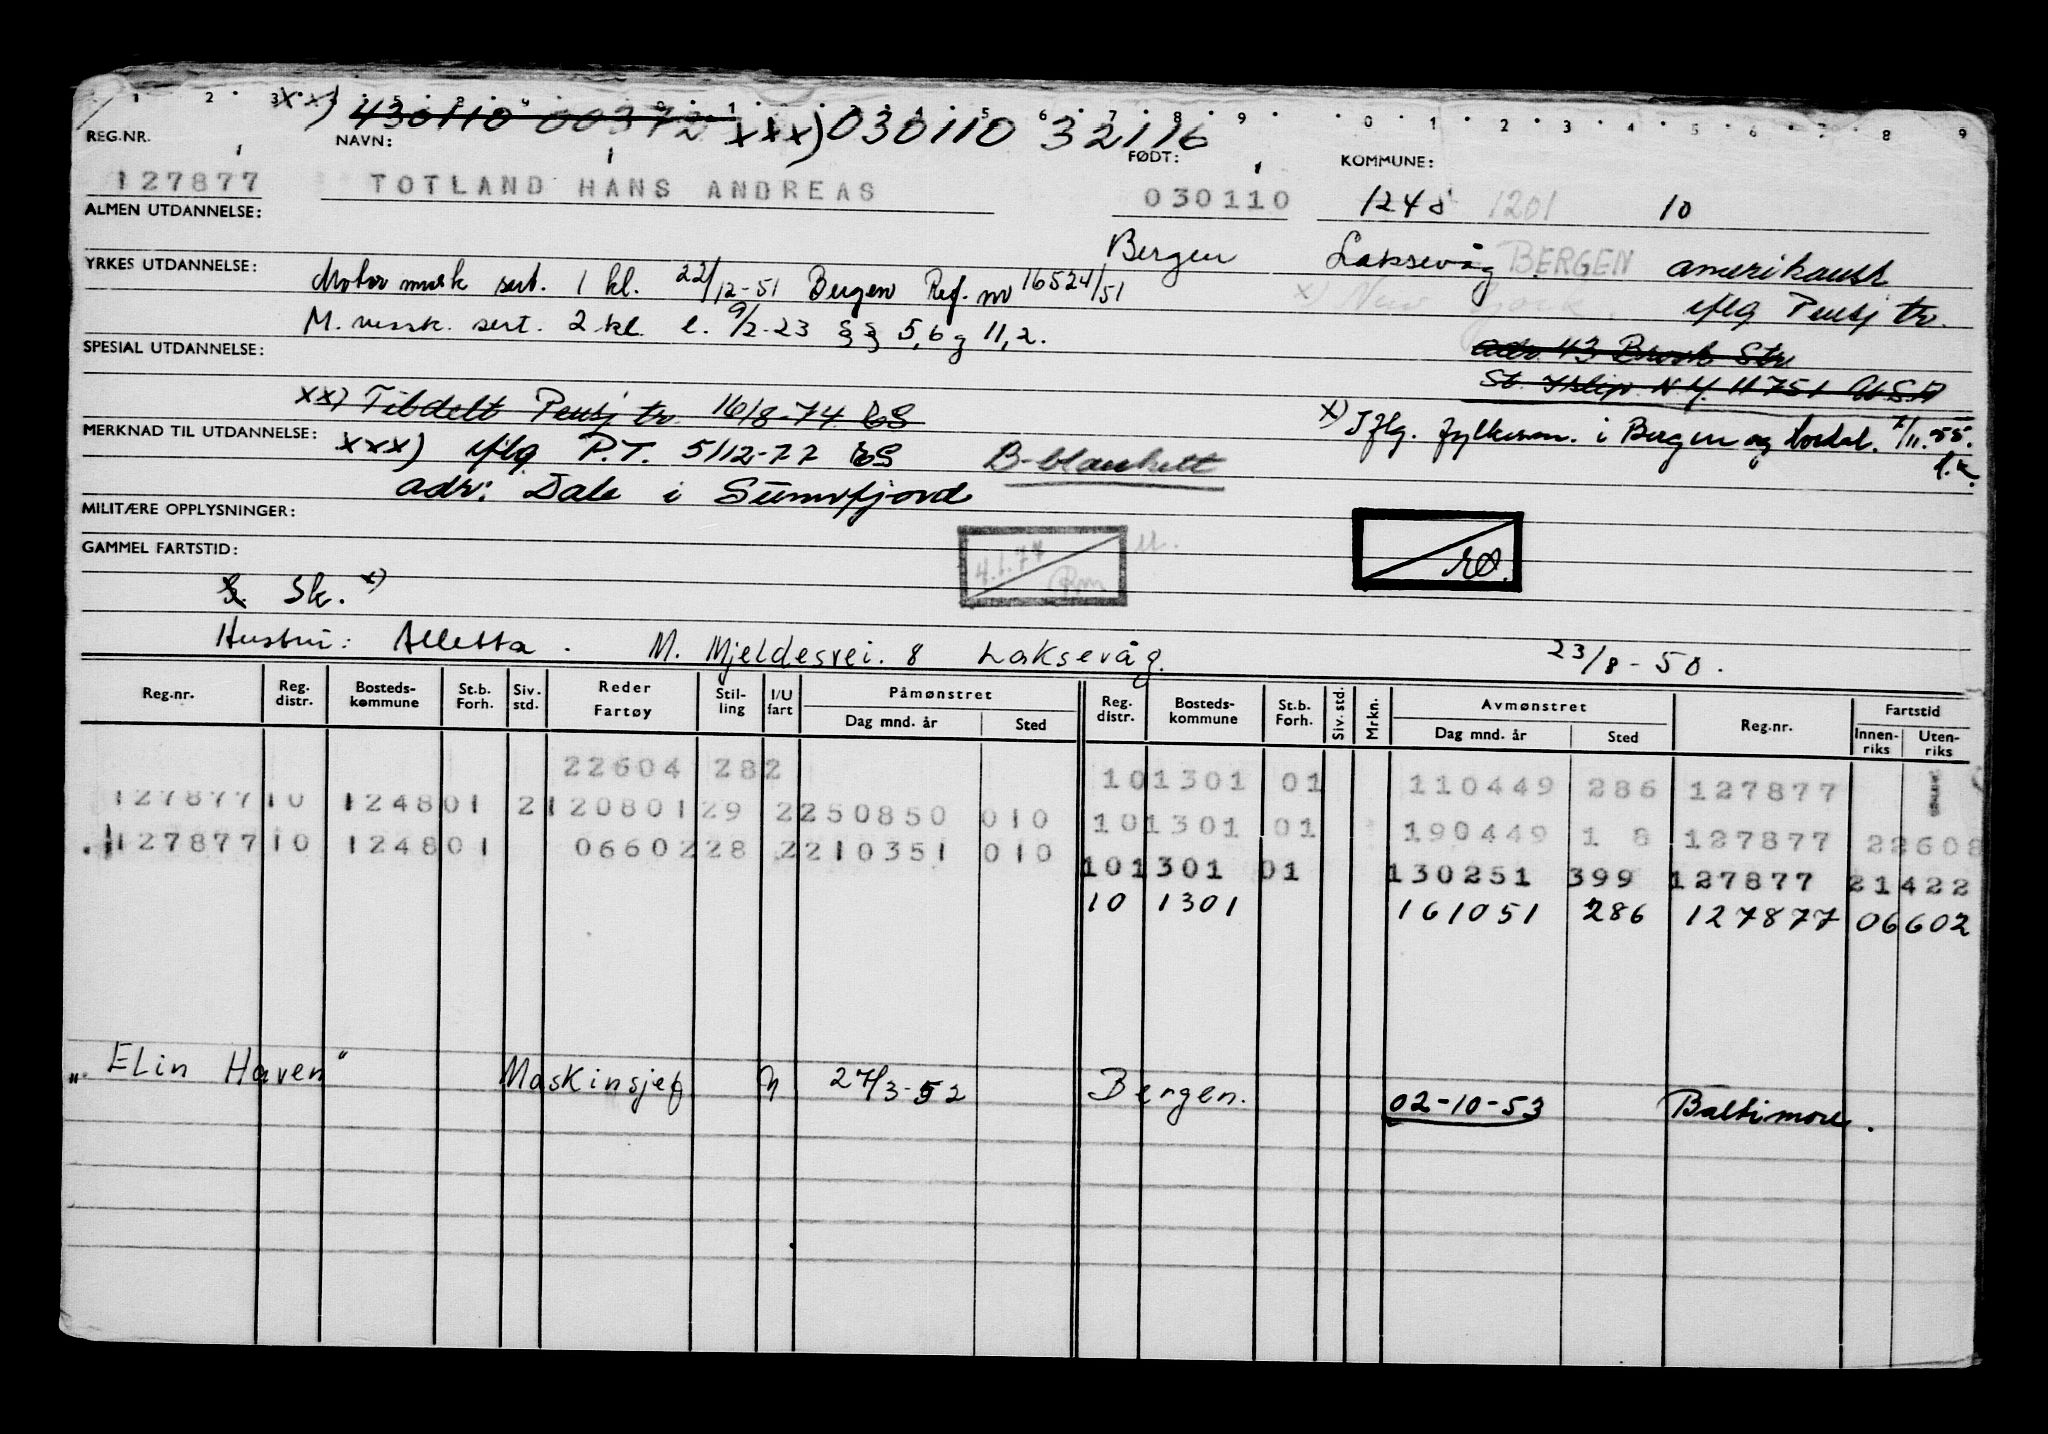 1 2 3 5 2 0 1 3 4 5 6 7 8 9 0 1 2 3 4 5 6 7 8 9
xx) 430110 00372 xxx) 030110 32116
REG.NR. NAVN: FØDT: KOMMUNE:
127877 TOTLAND HANS ANDREAS 030110 1248 1201 10
ALMEN UTDANNELSE:
Bergen Laksevåg BERGEN amerikansk
YRKES UTDANNELSE: Motor mask sert. 1 kl. 22/12-51 Bergen Ref. nr 16524/51
x) New York. iflg Pensj tr.
M. mask. sert. 2 kl. l. 9/2-23 §§ 5,6 g 11,2.
adr 43 Brook Str
SPESIAL UTDANNELSE:
St. Islip N.Y. 11751 U.S.A
xx) Tildelt Pensj tr 16/8-74 ES
x) Iflg. fylkesm. i Bergen og Hordal. 7/11.55.
MERKNAD TIL UTDANNELSE: xxx) iflg P.T. 5/12-77 ES B-blankett
adr: Dale i Sunnfjord
MILITÆRE OPPLYSNINGER:
4.1.77
GAMMEL FARTSTID:
Sk. x)
Hustru: Alletta. M. Mjeldesvei. 8 Laksevåg. 23/8-50.
Reg.nr. Reg. distr. Bosteds-kommune St.b. Forh. Siv. std. Reder Fartøy Stil-ling I/U fart Påmønstret Dag mnd. år Sted Reg. distr. Bosteds-kommune St.b. Forh. Siv. std. Mrkn. Avmønstret Dag mnd. år Sted Reg.nr. Fartstid Innen-riks Uten-riks
22604 282 101301 01 110449 286 127877
127877 10 124801 2120801 29 2250850 010 101301 01 190449 1 8 127877 22608
127877 10 124801 06602 28 2210351 010 101301 01 130251 399 127877 21422
10 1301 161051 286 127877 06602
„Elin Haven" Maskinsjef 27/3-52 Bergen. 02-10-53 Baltimore.